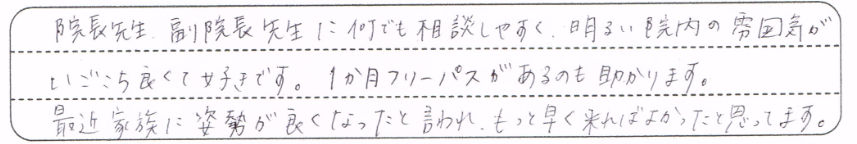 院長先生、副院長先生に何でも相談しやすく、明るい院内の雰囲気が
いごこち良くて好きです。1か月フリーパスがあるのも助かります。
最近家族に姿勢が良くなったと言われ、もっと早く来ればよかったと思ってます。